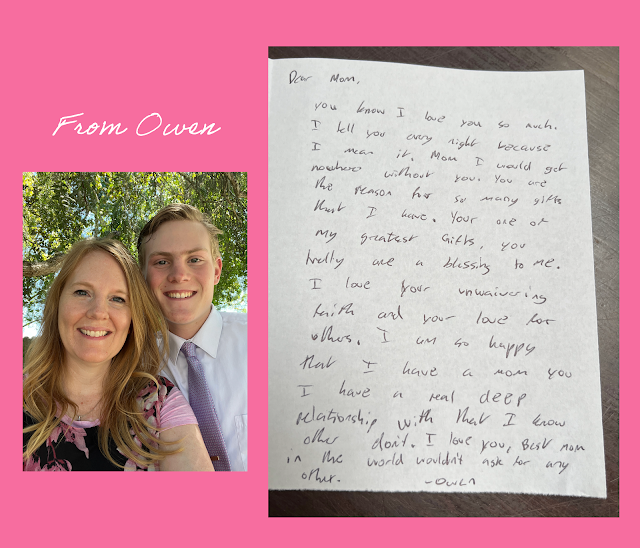 From Owen
Dear Mom,
you know I love you so much.
I tell you every night because
I mean it. Mom I would get
nowhere without you. You are
the reason for so many gifts
that I have. Your one of
my greatest Gifts, you
trully are a blessing to me.
I love your unwaivering
faith and your love for
others. I am so happy
that I have a mom you
I have a real deep
relationship with that I know
other don't. I love you, Best mom
in the world wouldn't ask for any
other. -Owen